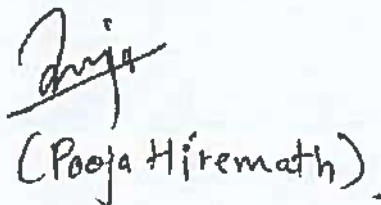 (Pooja Hiremath).